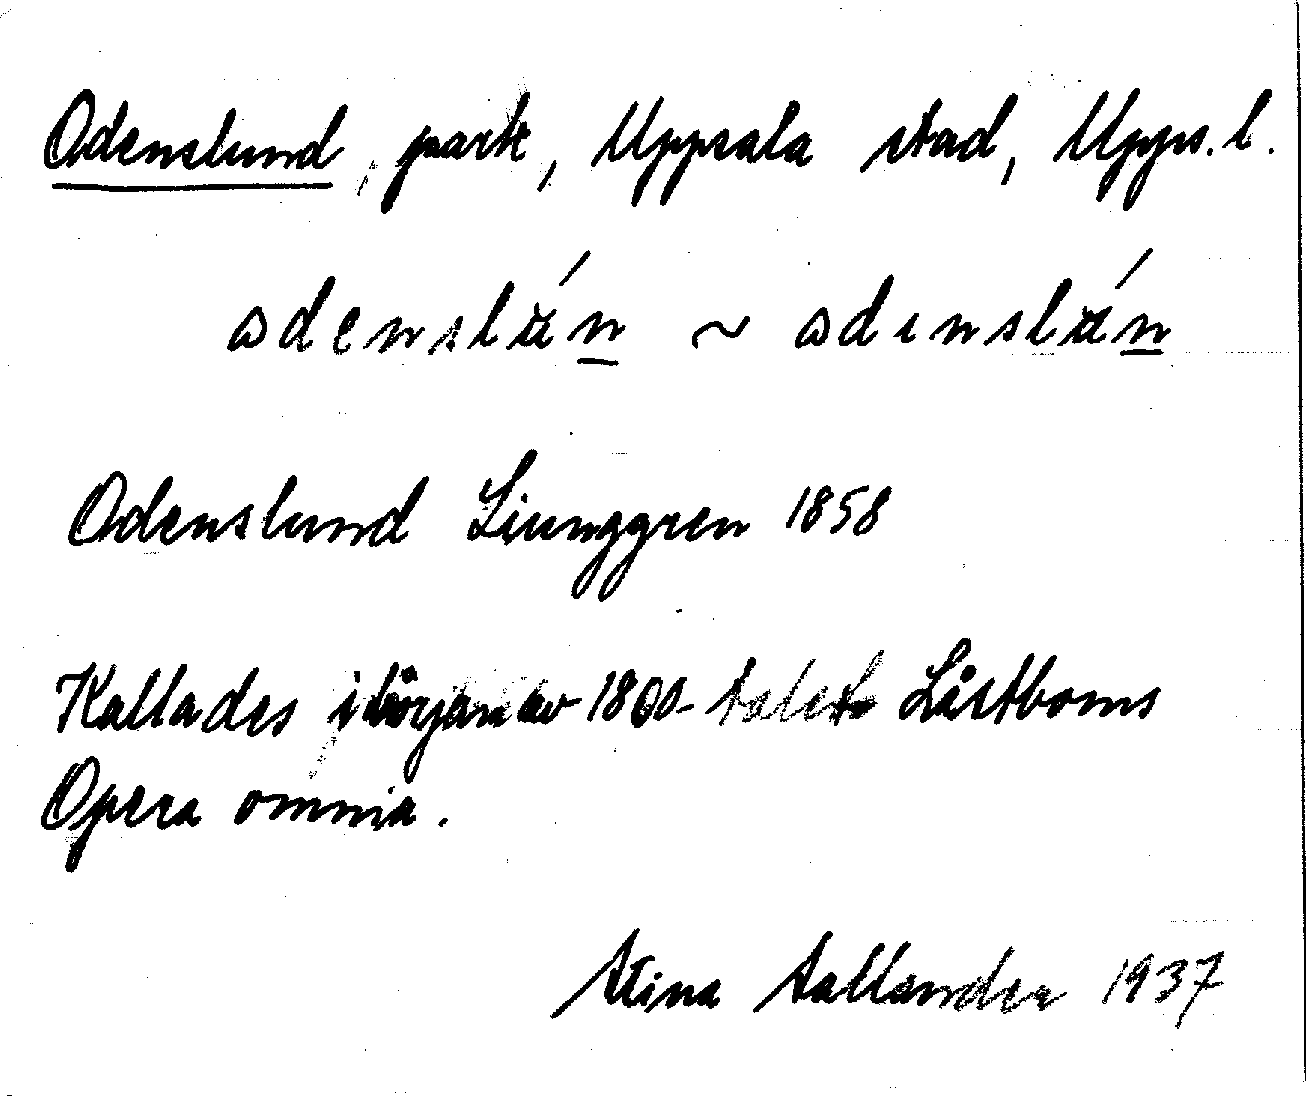 Odenslund, park, Uppsala stad, Upps. l.
odenslán ~ odınslán
Odenslund Ljunggren 1858
Kallades i början av 1800-talet Låstboms
Opera omnia.
Stina Sallander 1937